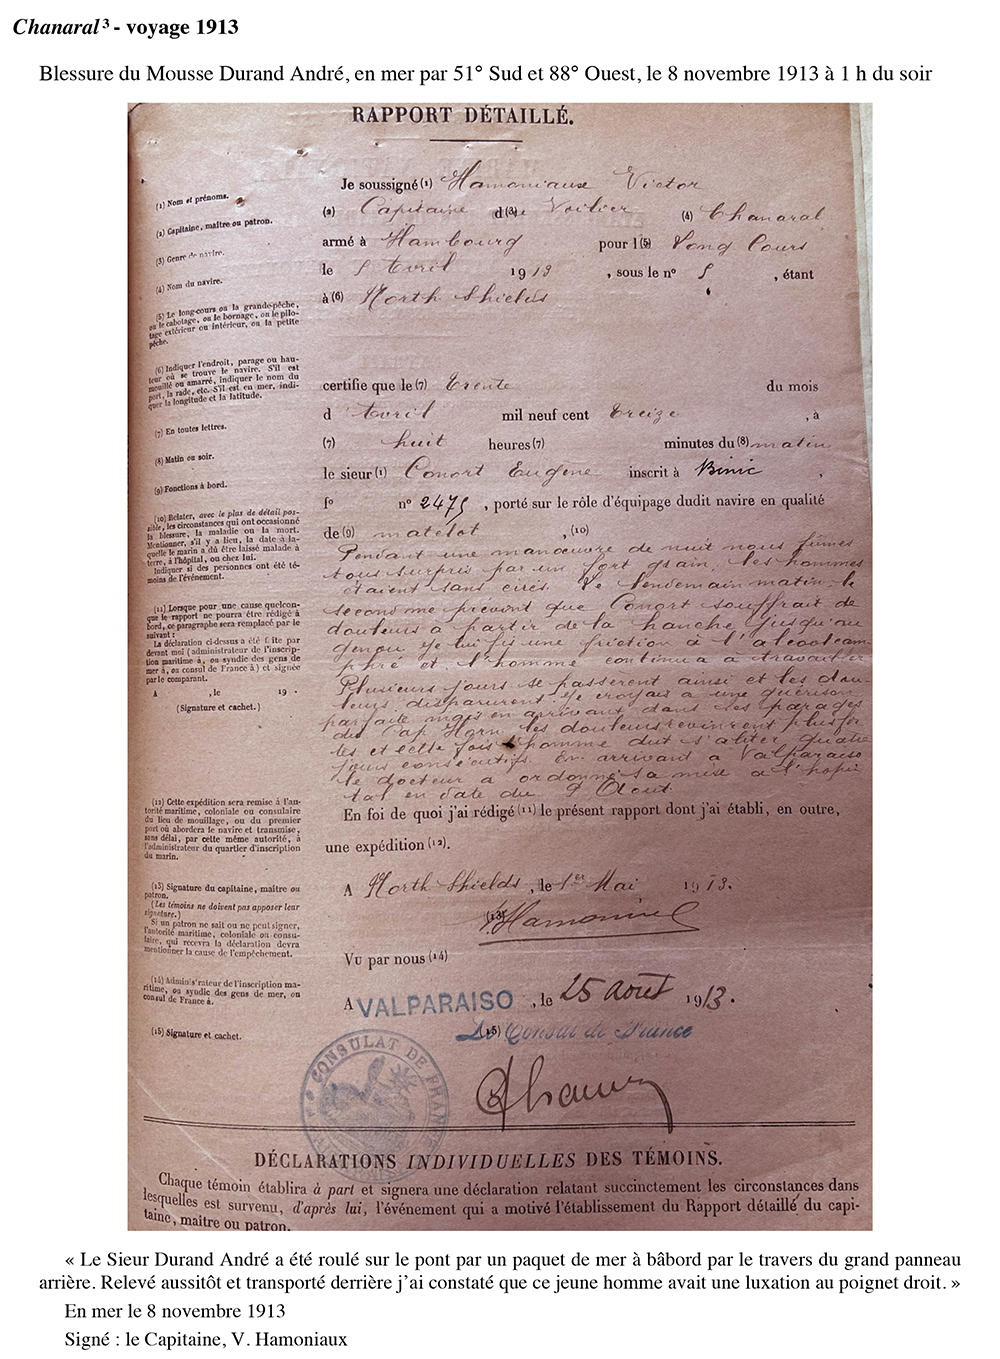 Chanaral 3 - voyage 1913
Blessure du Mousse Durand André, en mer par 51° Sud et 88° Ouest, le 8 novembre 1913 à 1 h du soir
RAPPORT DÉTAILLÉ.
Je soussigné (1) Hamoniaux Victor
(2) Capitaine d(3) Voilier (4) Chanaral
armé à Hambourg pour l(5) Long Cours
le 5 Avril 1913, sous le n° 5, étant
à (6) North Shields
certifie que le (7) Trente du mois
d'Avril mil neuf cent treize, à
(7) huit heures (7) minutes du (8) matin
le sieur (1) Conort Eugène inscrit à Binic,
f° n° 2475, porté sur le rôle d'équipage dudit navire en qualité
de (9) matelot, (10)
Pendant une manœuvre de nuit nous fûmes
tous surpris par un fort grain, les hommes
étaient sans cirés. Le lendemain matin le
second me prévint que Conort souffrait de
douleurs a partir de la hanche jusqu'au
genou. Je lui fis une friction à l'alcool cam
phré et l'homme continua a travailler
Plusieurs jours se passèrent ainsi et les dou-
leurs disparurent. Je croyais a une guérison
parfaite mais en arrivant dans les parages
du Cap Horn les douleurs revinrent plus for
tes et cette fois l'homme dut s'aliter quatre
jours consécutifs. En arrivant a Valparaiso
le docteur a ordonné sa mise a l'hopi
tal en date du 9 Aout.
En foi de quoi j'ai rédigé (11) le présent rapport dont j'ai établi, en outre,
une expédition (12).
A North Shields, le 1er Mai 1913.
(13) Hamoniaux
Vu par nous (14)
A VALPARAISO, le 25 août 1913.
(15) Le Consul de France
CONSULAT DE FRANCE
(1) Nom et prénoms.
(2) Capitaine, maître ou patron.
(3) Genre de navire.
(4) Nom du navire.
(5) Le long-cours ou la grande-pêche,
ou le cabotage, ou le bornage, ou le pilo-
tage extérieur ou intérieur, ou la petite
pêche.
(6) Indiquer l'endroit, parage ou hau-
teur où se trouve le navire. S'il est
mouillé ou amarré, indiquer le nom du
port, la rade, etc. S'il est en mer, indi-
quer la longitude et la latitude.
(7) En toutes lettres.
(8) Matin ou soir.
(9) Fonctions à bord.
(10) Relater, avec le plus de détail pos-
sible, les circonstances qui ont occasionné
la blessure, la maladie ou la mort.
Mentionner, s'il y a lieu, la date à la-
quelle le marin a dû être laissé malade à
terre, à l'hôpital, ou chez lui.
Indiquer si des personnes ont été té-
moins de l'événement.
(11) Lorsque pour une cause quelcon-
que le rapport ne pourra être rédigé à
bord, ce paragraphe sera remplacé par le
suivant :
La déclaration ci-dessus a été faite par
devant moi (administrateur de l'inscrip-
tion maritime à, ou syndic des gens de
mer à, ou consul de France à) et signée
par le comparant.
A , le 19 .
(Signature et cachet.)
(12) Cette expédition sera remise à l'au-
torité maritime, coloniale ou consulaire
du lieu de mouillage, ou du premier
port où abordera le navire et transmise,
sans délai, par cette même autorité, à
l'administrateur du quartier d'inscription
du marin.
(13) Signature du capitaine, maître ou
patron.
(Les témoins ne doivent pas apposer leur
signature.)
Si un patron ne sait ou ne peut signer,
l'autorité maritime, coloniale ou consu-
laire, qui recevra la déclaration devra
mentionner la cause de l'empêchement.
(14) Administrateur de l'inscription ma-
ritime, ou syndic des gens de mer, ou
consul de France à.
(15) Signature et cachet.
DÉCLARATIONS INDIVIDUELLES DES TÉMOINS.
Chaque témoin établira à part et signera une déclaration relatant succinctement les circonstances dans
lesquelles est survenu, d'après lui, l'événement qui a motivé l'établissement du Rapport détaillé du capi-
taine, maître ou patron.
« Le Sieur Durand André a été roulé sur le pont par un paquet de mer à bâbord par le travers du grand panneau
arrière. Relevé aussitôt et transporté derrière j'ai constaté que ce jeune homme avait une luxation au poignet droit. »
En mer le 8 novembre 1913
Signé : le Capitaine, V. Hamoniaux